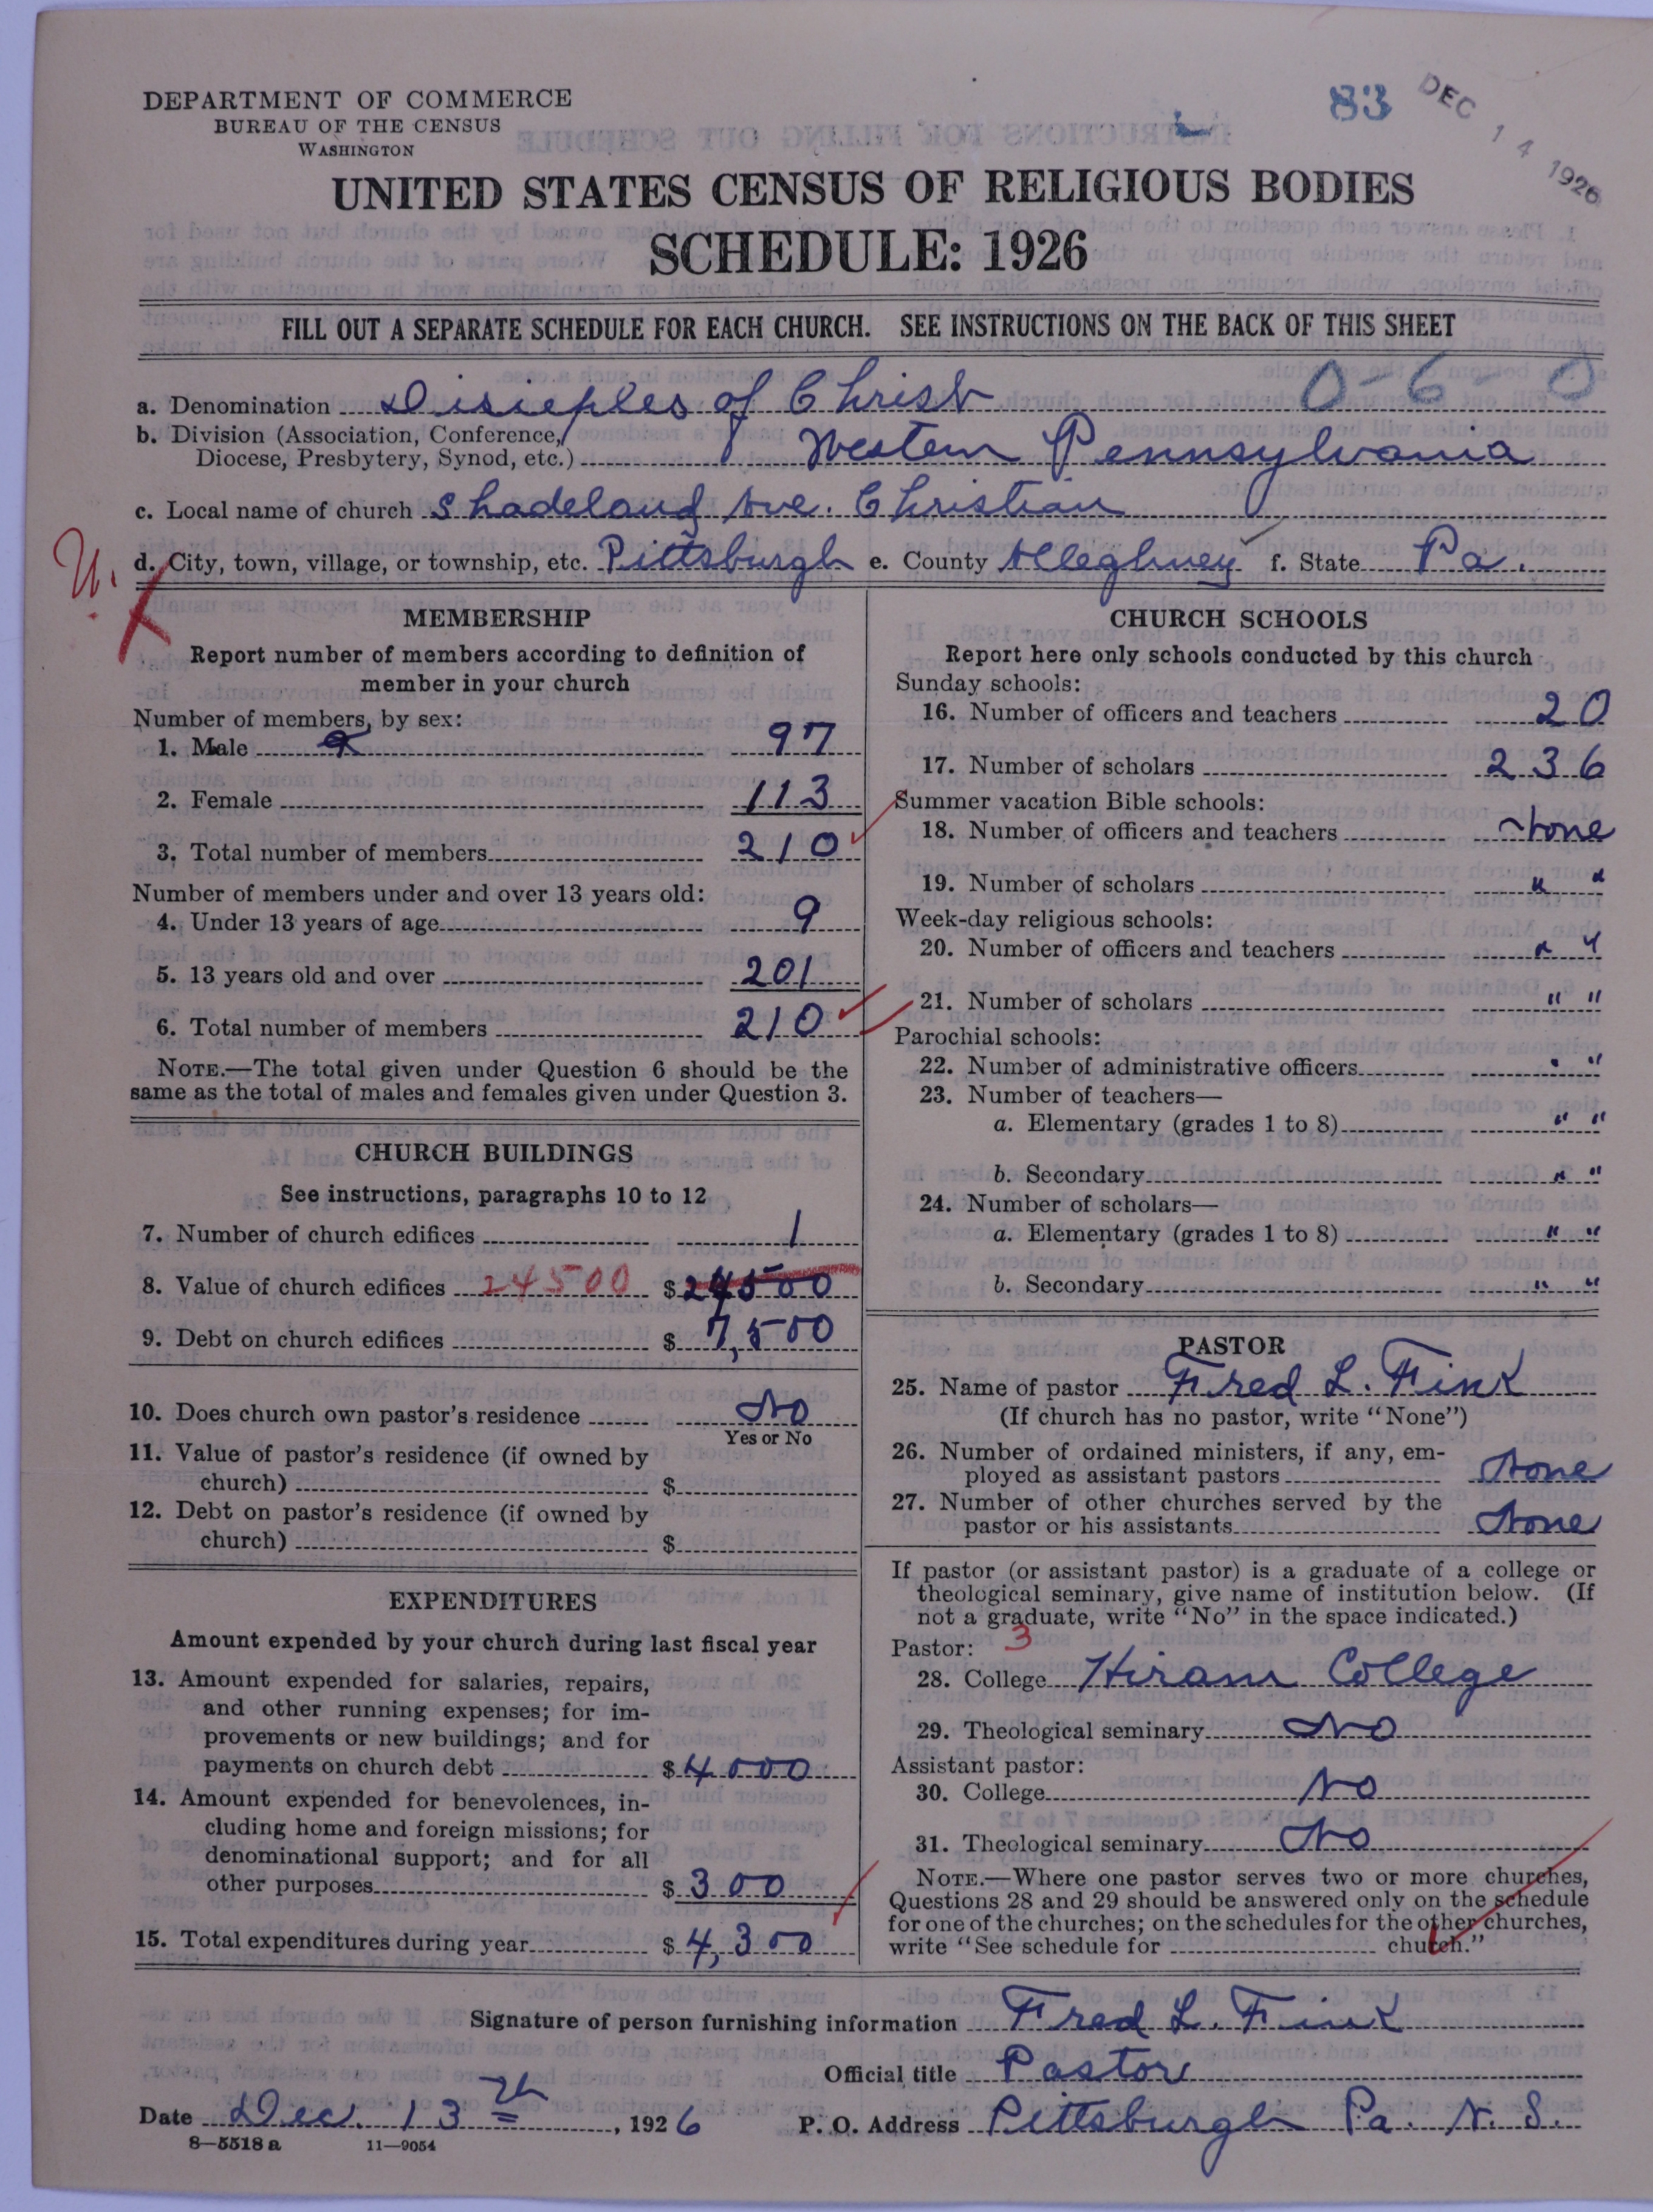 DEPARTMENT OF COMMERCE
BUREAU OF THE CENSUS
WASHINGTON
83
DEC 14 1926
UNITED STATES CENSUS OF RELIGIOUS BODIES
SCHEDULE: 1926
FILL OUT A SEPARATE SCHEDULE FOR EACH CHURCH. SEE INSTRUCTIONS ON THE BACK OF THIS SHEET
0-6-0
a. Denomination Disieples of Christ
b. Division (Association, Conference,
Diocese, Presbytery, Synod, etc.) Western Pennsylvania
c. Local name of church Shadeland Ave. Christian
U.
d. City, town, village, or township, etc. Pittsburgh e. County Alleghney f. State Pa.
MEMBERSHIP
Report number of members according to definition of
member in your church
Number of members, by sex:
1. Male 97
2. Female 113
3. Total number of members 210
Number of members under and over 13 years old:
4. Under 13 years of age 9
5. 13 years old and over 201
6. Total number of members 210
NOTE.—The total given under Question 6 should be the
same as the total of males and females given under Question 3.
CHURCH BUILDINGS
See instructions, paragraphs 10 to 12
7. Number of church edifices 1
8. Value of church edifices 24500 $24500
9. Debt on church edifices $ 7,500
10. Does church own pastor's residence No
Yes or No
11. Value of pastor's residence (if owned by
church) $
12. Debt on pastor's residence (if owned by
church) $
EXPENDITURES
Amount expended by your church during last fiscal year
13. Amount expended for salaries, repairs,
and other running expenses; for im-
provements or new buildings; and for
payments on church debt $4000
14. Amount expended for benevolences, in-
cluding home and foreign missions; for
denominational support; and for all
other purposes $ 300
15. Total expenditures during year $ 4,300
CHURCH SCHOOLS
Report here only schools conducted by this church
Sunday schools:
16. Number of officers and teachers 20
17. Number of scholars 236
Summer vacation Bible schools:
18. Number of officers and teachers None
19. Number of scholars " "
Week-day religious schools:
20. Number of officers and teachers " "
21. Number of scholars " "
Parochial schools:
22. Number of administrative officers " "
23. Number of teachers—
a. Elementary (grades 1 to 8) " "
b. Secondary " "
24. Number of scholars—
a. Elementary (grades 1 to 8) " "
b. Secondary " "
PASTOR
25. Name of pastor Fred L. Fink
(If church has no pastor, write "None")
26. Number of ordained ministers, if any, em-
ployed as assistant pastors None
27. Number of other churches served by the
pastor or his assistants None
If pastor (or assistant pastor) is a graduate of a college or
theological seminary, give name of institution below. (If
not a graduate, write "No" in the space indicated.)
Pastor: 3
28. College Hiram College
29. Theological seminary No
Assistant pastor:
30. College No
31. Theological seminary No
NOTE.—Where one pastor serves two or more churches,
Questions 28 and 29 should be answered only on the schedule
for one of the churches; on the schedules for the other churches,
write "See schedule for church."
Signature of person furnishing information Fred L. Fink
Official title Pastor
Date Dec. 13th, 1926 P. O. Address Pittsburgh Pa. N. S.
8—5518 a 11—9054